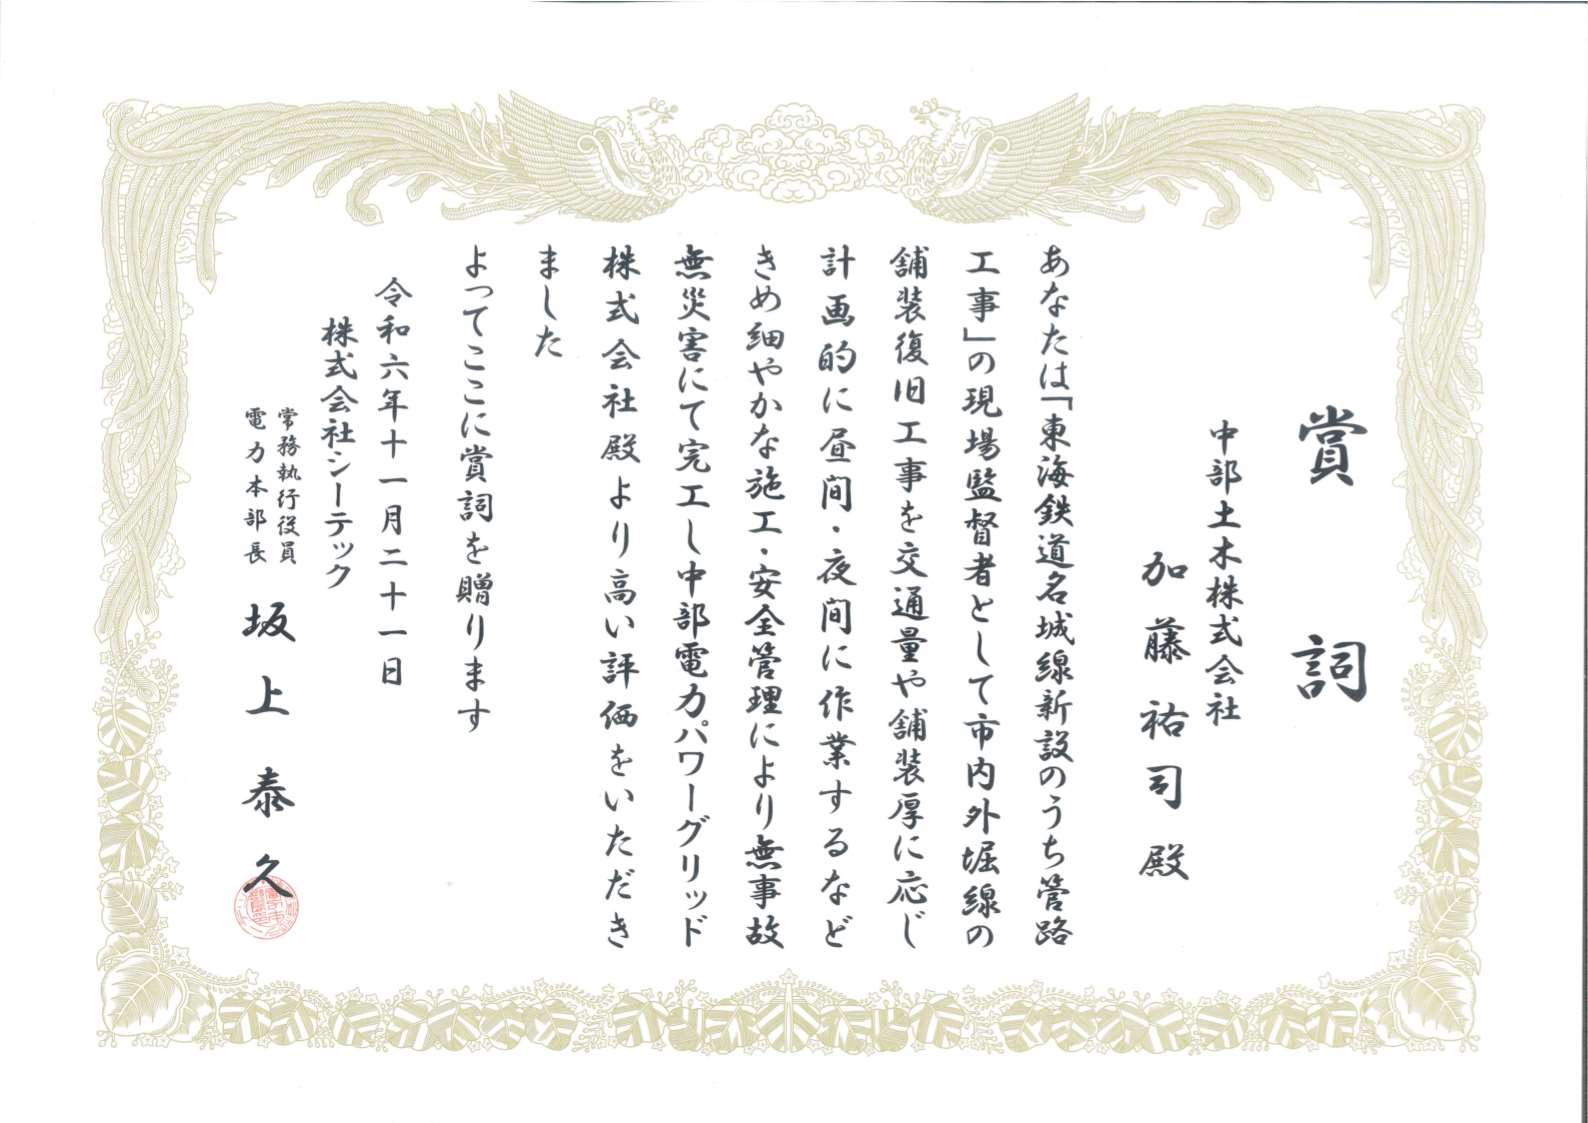 賞詞
中部土木株式会社
加藤祐司殿
あなたは「東海鉄道名城線新設のうち管路
工事」の現場監督者として市内外堀線の
舗装復旧工事を交通量や舗装厚に応じ
計画的に昼間・夜間に作業するなど
きめ細やかな施工・安全管理により無事故
無災害にて完工し中部電力パワーグリッド
株式会社殿より高い評価をいただき
ました
よってここに賞詞を贈ります
令和六年十一月二十一日
株式会社シーテック
常務執行役員
電力本部長
坂上泰久